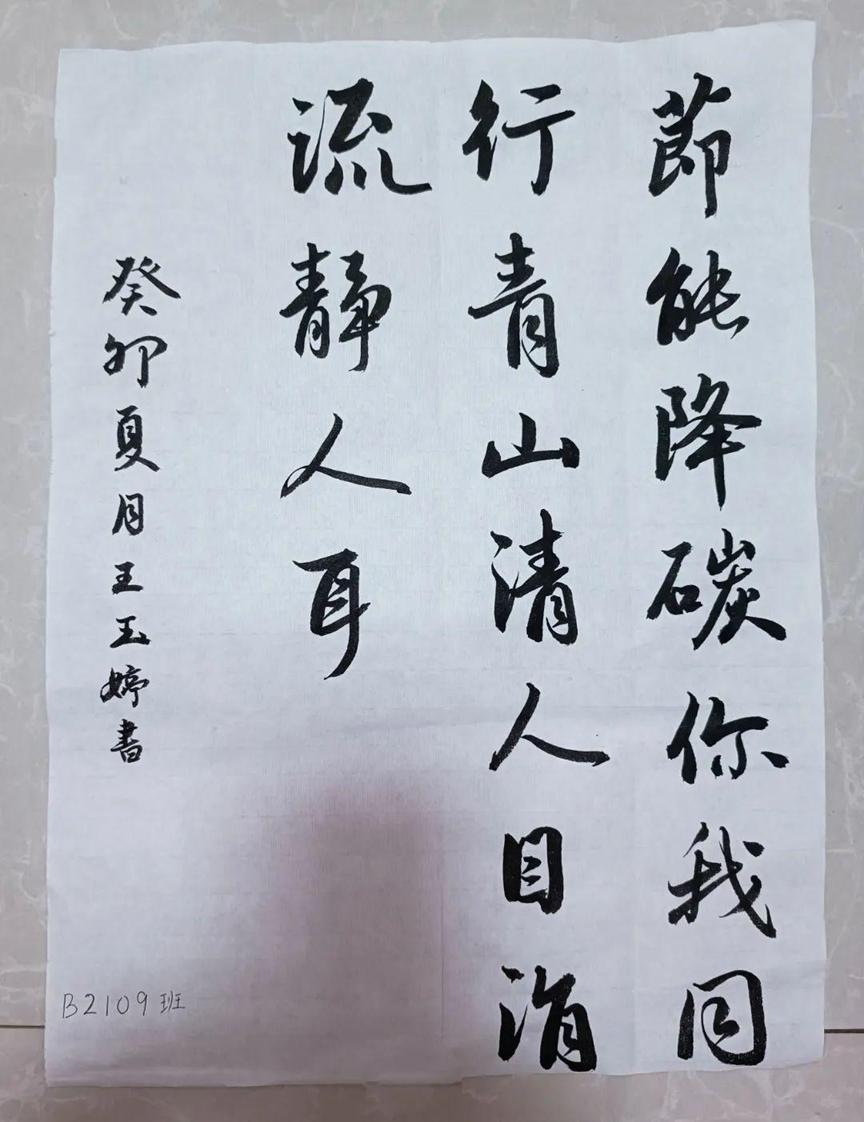 節能降碳你我同
行青山清人目涓
流靜人耳
癸卯夏月王玉婷書
B2109班